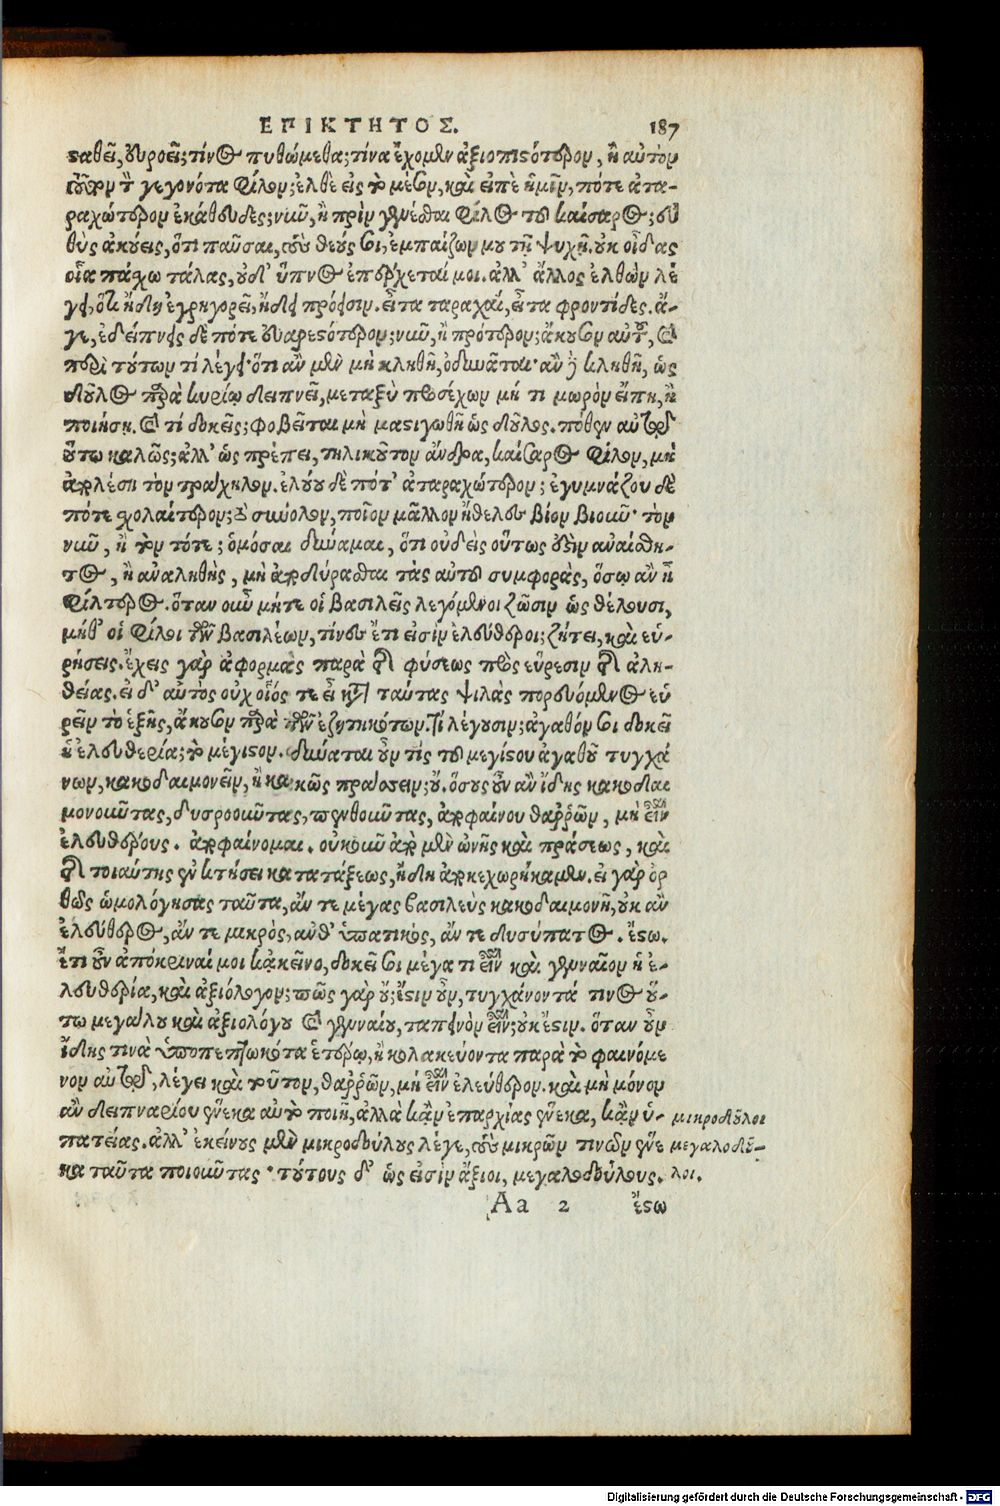 ΕΠΙΚΤΗΤΟΣ. 187
σταθεῖ, εὐροεῖ; τίνος πυθώμεθα; τίνα ἔχομεν ἀξιοπιστότερον, ἢ αὐτὸν
τοῦτον τὸν γεγονότα φίλον; ἐλθὲ εἰς τὸ μέσον, καὶ εἰπὲ ἡμῖν, πότε ἀτα-
ραχώτερον ἐκάθευδες; νῦν, ἢ πρὶν γενέσθαι φίλος τοῦ καίσαρος; εὐ
θὺς ἀκούεις, ὅτι παῦσαι, τοὺς θεούς σοι, ἐμπαίζων μου τῇ ψυχῇ. οὐκ οἶδας
οἷα πάσχω τάλας, οὐδ' ὕπνος ἐπέρχεταί μοι. ἀλλ' ἄλλος ἐλθὼν λέ
γει, ὅτι ἤδη ἐγρηγορεῖ, ἤδη πρόεισιν. εἶτα ταραχαί, εἶτα φροντίδες. ἄ-
γε, ἐδείπνεις δὲ πότε εὐαρεστότερον; νῦν, ἢ πρότερον; ἄκουσον αὐτοῦ, καὶ
περὶ τούτων τί λέγει· ὅτι ἂν μὲν μὴ κληθῇ, ὀδυνᾶται· ἂν δὲ κληθῇ, ὡς
δοῦλος παρὰ κυρίῳ δειπνεῖ, μεταξὺ προσέχων μή τι μωρὸν εἴπῃ, ἢ
ποιήσῃ. καὶ τί δοκεῖς; φοβεῖται μὴ μαστιγωθῇ ὡς δοῦλος. πόθεν αὐτῷ
οὕτω καλῶς; ἀλλ' ὡς πρέπει, τηλικοῦτον ἄνδρα, καίσαρος φίλον, μὴ
ἀπολέσῃ τὸν τράχηλον. ἐλούου δὲ πότ' ἀταραχώτερον; ἐγυμνάζου δὲ
πότε σχολαίτερον; τὸ σύνολον, ποῖον μᾶλλον ἤθελες βίον βιοῦν· τὸν
νῦν, ἢ τὸν τότε; ὀμόσαι δύναμαι, ὅτι οὐδεὶς οὕτως ἐστὶν ἀναίσθη-
τος, ἢ ἀναληθὴς, μὴ ἀποδύρασθαι τὰς αὐτοῦ συμφορὰς, ὅσῳ ἂν ᾖ
φίλτερος. ὅταν οὖν μήτε οἱ βασιλεῖς λεγόμενοι ζῶσιν ὡς θέλουσι,
μήθ' οἱ φίλοι τῶν βασιλέων, τίνες ἔτι εἰσὶν ἐλεύθεροι; ζήτει, καὶ εὑ-
ρήσεις. ἔχεις γὰρ ἀφορμὰς παρὰ τῆς φύσεως πρὸς εὕρεσιν τῆς ἀλη-
θείας. εἰ δ' αὐτὸς οὐχ οἷός τε εἶ κατὰ ταύτας ψιλὰς πορευόμενος εὑ
ρεῖν τὸ ἑξῆς, ἄκουσον παρὰ τῶν ἐζητηκότων. τί λέγουσιν; ἀγαθόν σοι δοκεῖ
ἡ ἐλευθερία; τὸ μέγιστον. δύναται οὖν τίς τοῦ μεγίστου ἀγαθοῦ τυγχά
νων, κακοδαιμονεῖν, ἢ κακῶς πράσσειν; οὔ. ὅσους οὖν ἂν ἴδῃς κακοδαι
μονοῦντας, δυσροοῦντας, πενθοῦντας, ἀποφαίνου θαῤῥῶν, μὴ εἶναι
ἐλευθέρους. ἀποφαίνομαι. οὐκοῦν ἀπὸ μὲν ὠνῆς καὶ πράσεως, καὶ
τῆς τοιαύτης ἐν κτήσει κατατάξεως, ἤδη ἀποκεχωρήκαμεν. εἰ γὰρ ὀρ
θῶς ὡμολόγησας ταῦτα, ἄν τε μέγας βασιλεὺς κακοδαιμονῇ, οὐκ ἂν
ἐλεύθερος, ἄν τε μικρὸς, ἄνθ' ὑπατικὸς, ἄν τε δυσύπατος. ἔστω.
Ἔτι οὖν ἀπόκριναί μοι κἀκεῖνο, δοκεῖ σοι μέγα τι εἶναι καὶ γενναῖον ἡ ἐ-
λευθερία, καὶ ἀξιόλογον; πῶς γὰρ οὔ; ἔστιν οὖν, τυγχάνοντά τινος οὕ-
τω μεγάλου καὶ ἀξιολόγου καὶ γενναίου, ταπεινὸν εἶναι; οὐκ ἔστιν. ὅταν οὖν
ἴδῃς τινὰ ὑποπεπτωκότα ἑτέρῳ, ἢ κολακεύοντα παρὰ τὸ φαινόμε
νον αὐτῷ, λέγε καὶ τοῦτον, θαῤῥῶν, μὴ εἶναι ἐλεύθερον. καὶ μὴ μόνον
ἂν δειπναρίου ἕνεκα αὐτὸ ποιῇ, ἀλλὰ κἂν ἐπαρχίας ἕνεκα, κἂν ὑ-
πατείας. ἀλλ' ἐκείνους μὲν μικροδούλους λέγε, τοὺς μικρῶν τινῶν ἕνε
κα ταῦτα ποιοῦντας· τούτους δ' ὡς εἰσὶν ἄξιοι, μεγαλοδούλους.
μικροδοῦλοι
μεγαλοδοῦ-
λοι.
Aa 2 ἔστω
Digitalisierung gefördert durch die Deutsche Forschungsgemeinschaft - DFG